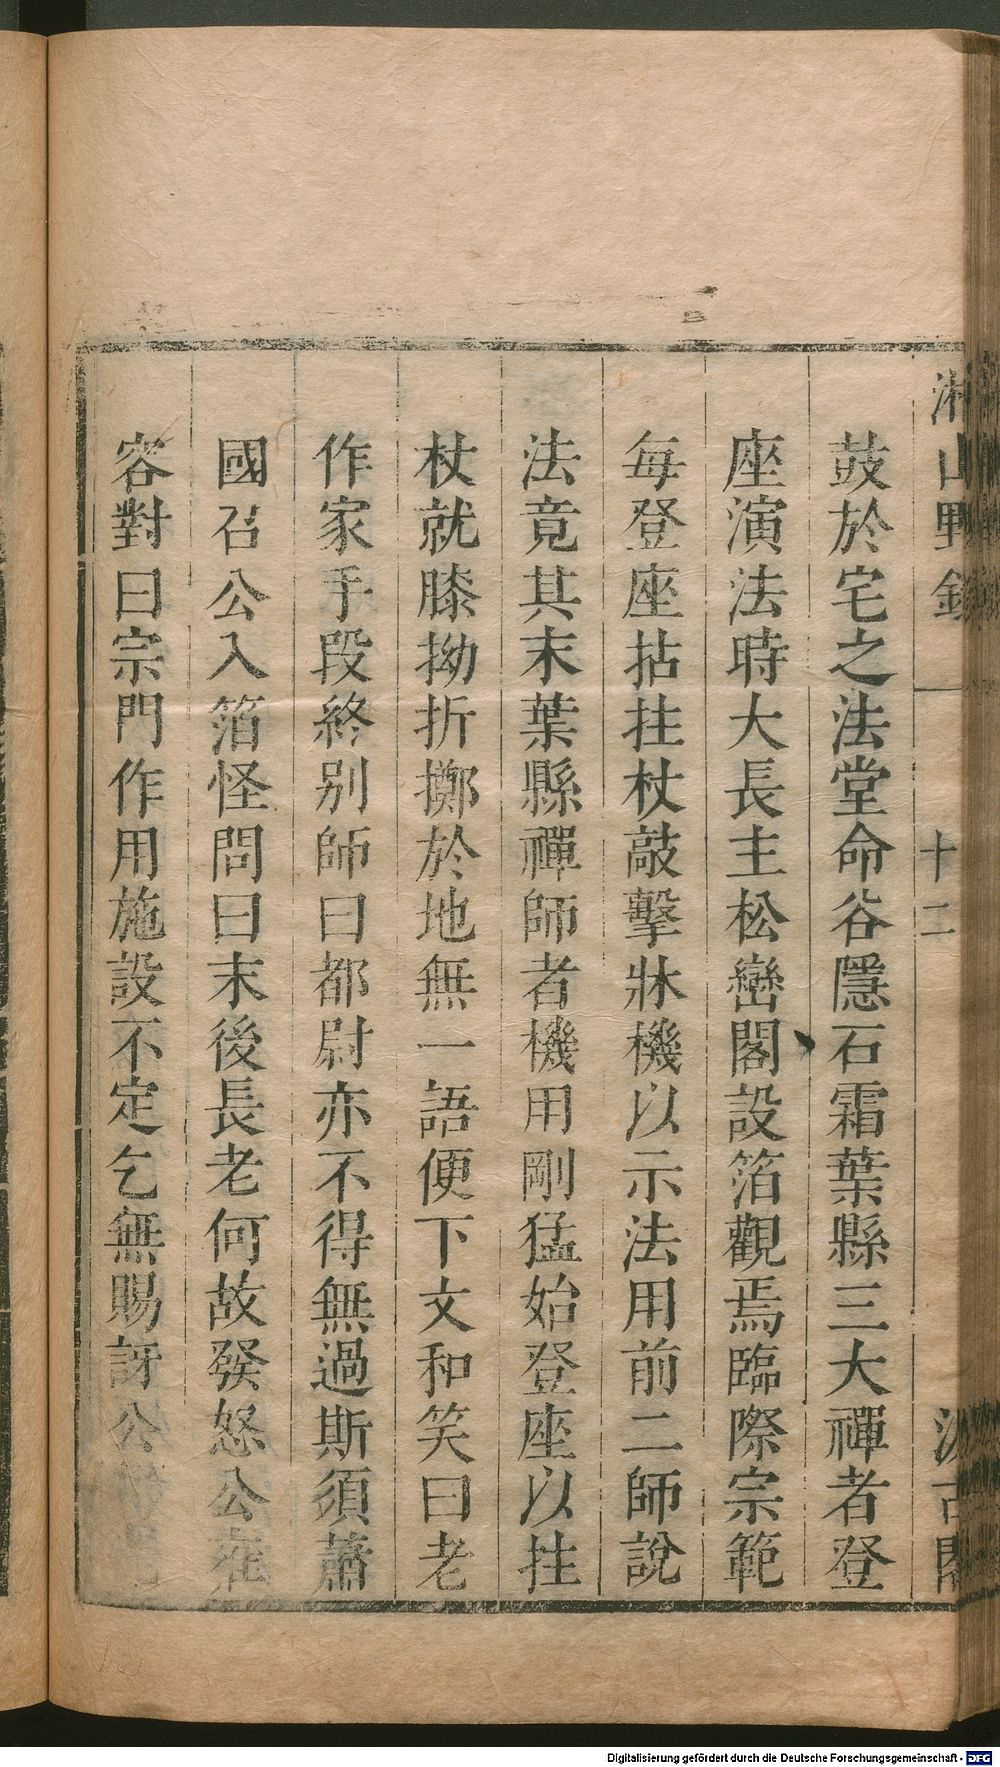 湘山野錄
十二
汲古閣
鼓於宅之法堂命谷隱石霜葉縣三大禪者登
座演法時大長主松巒閣設箔觀焉臨際宗範
每登座拈拄杖敲擊牀機以示法用前二師說
法竟其末葉縣禪師者機用剛猛始登座以拄
杖就膝拗折擲於地無一語便下文和笑曰老
作家手段終别師曰都尉亦不得無過斯須蕭
國召公入箔怪問曰末後長老何故發怒公雍
容對曰宗門作用施設不定乞無賜訝公
Digitalisierung gefördert durch die Deutsche Forschungsgemeinschaft - DFG